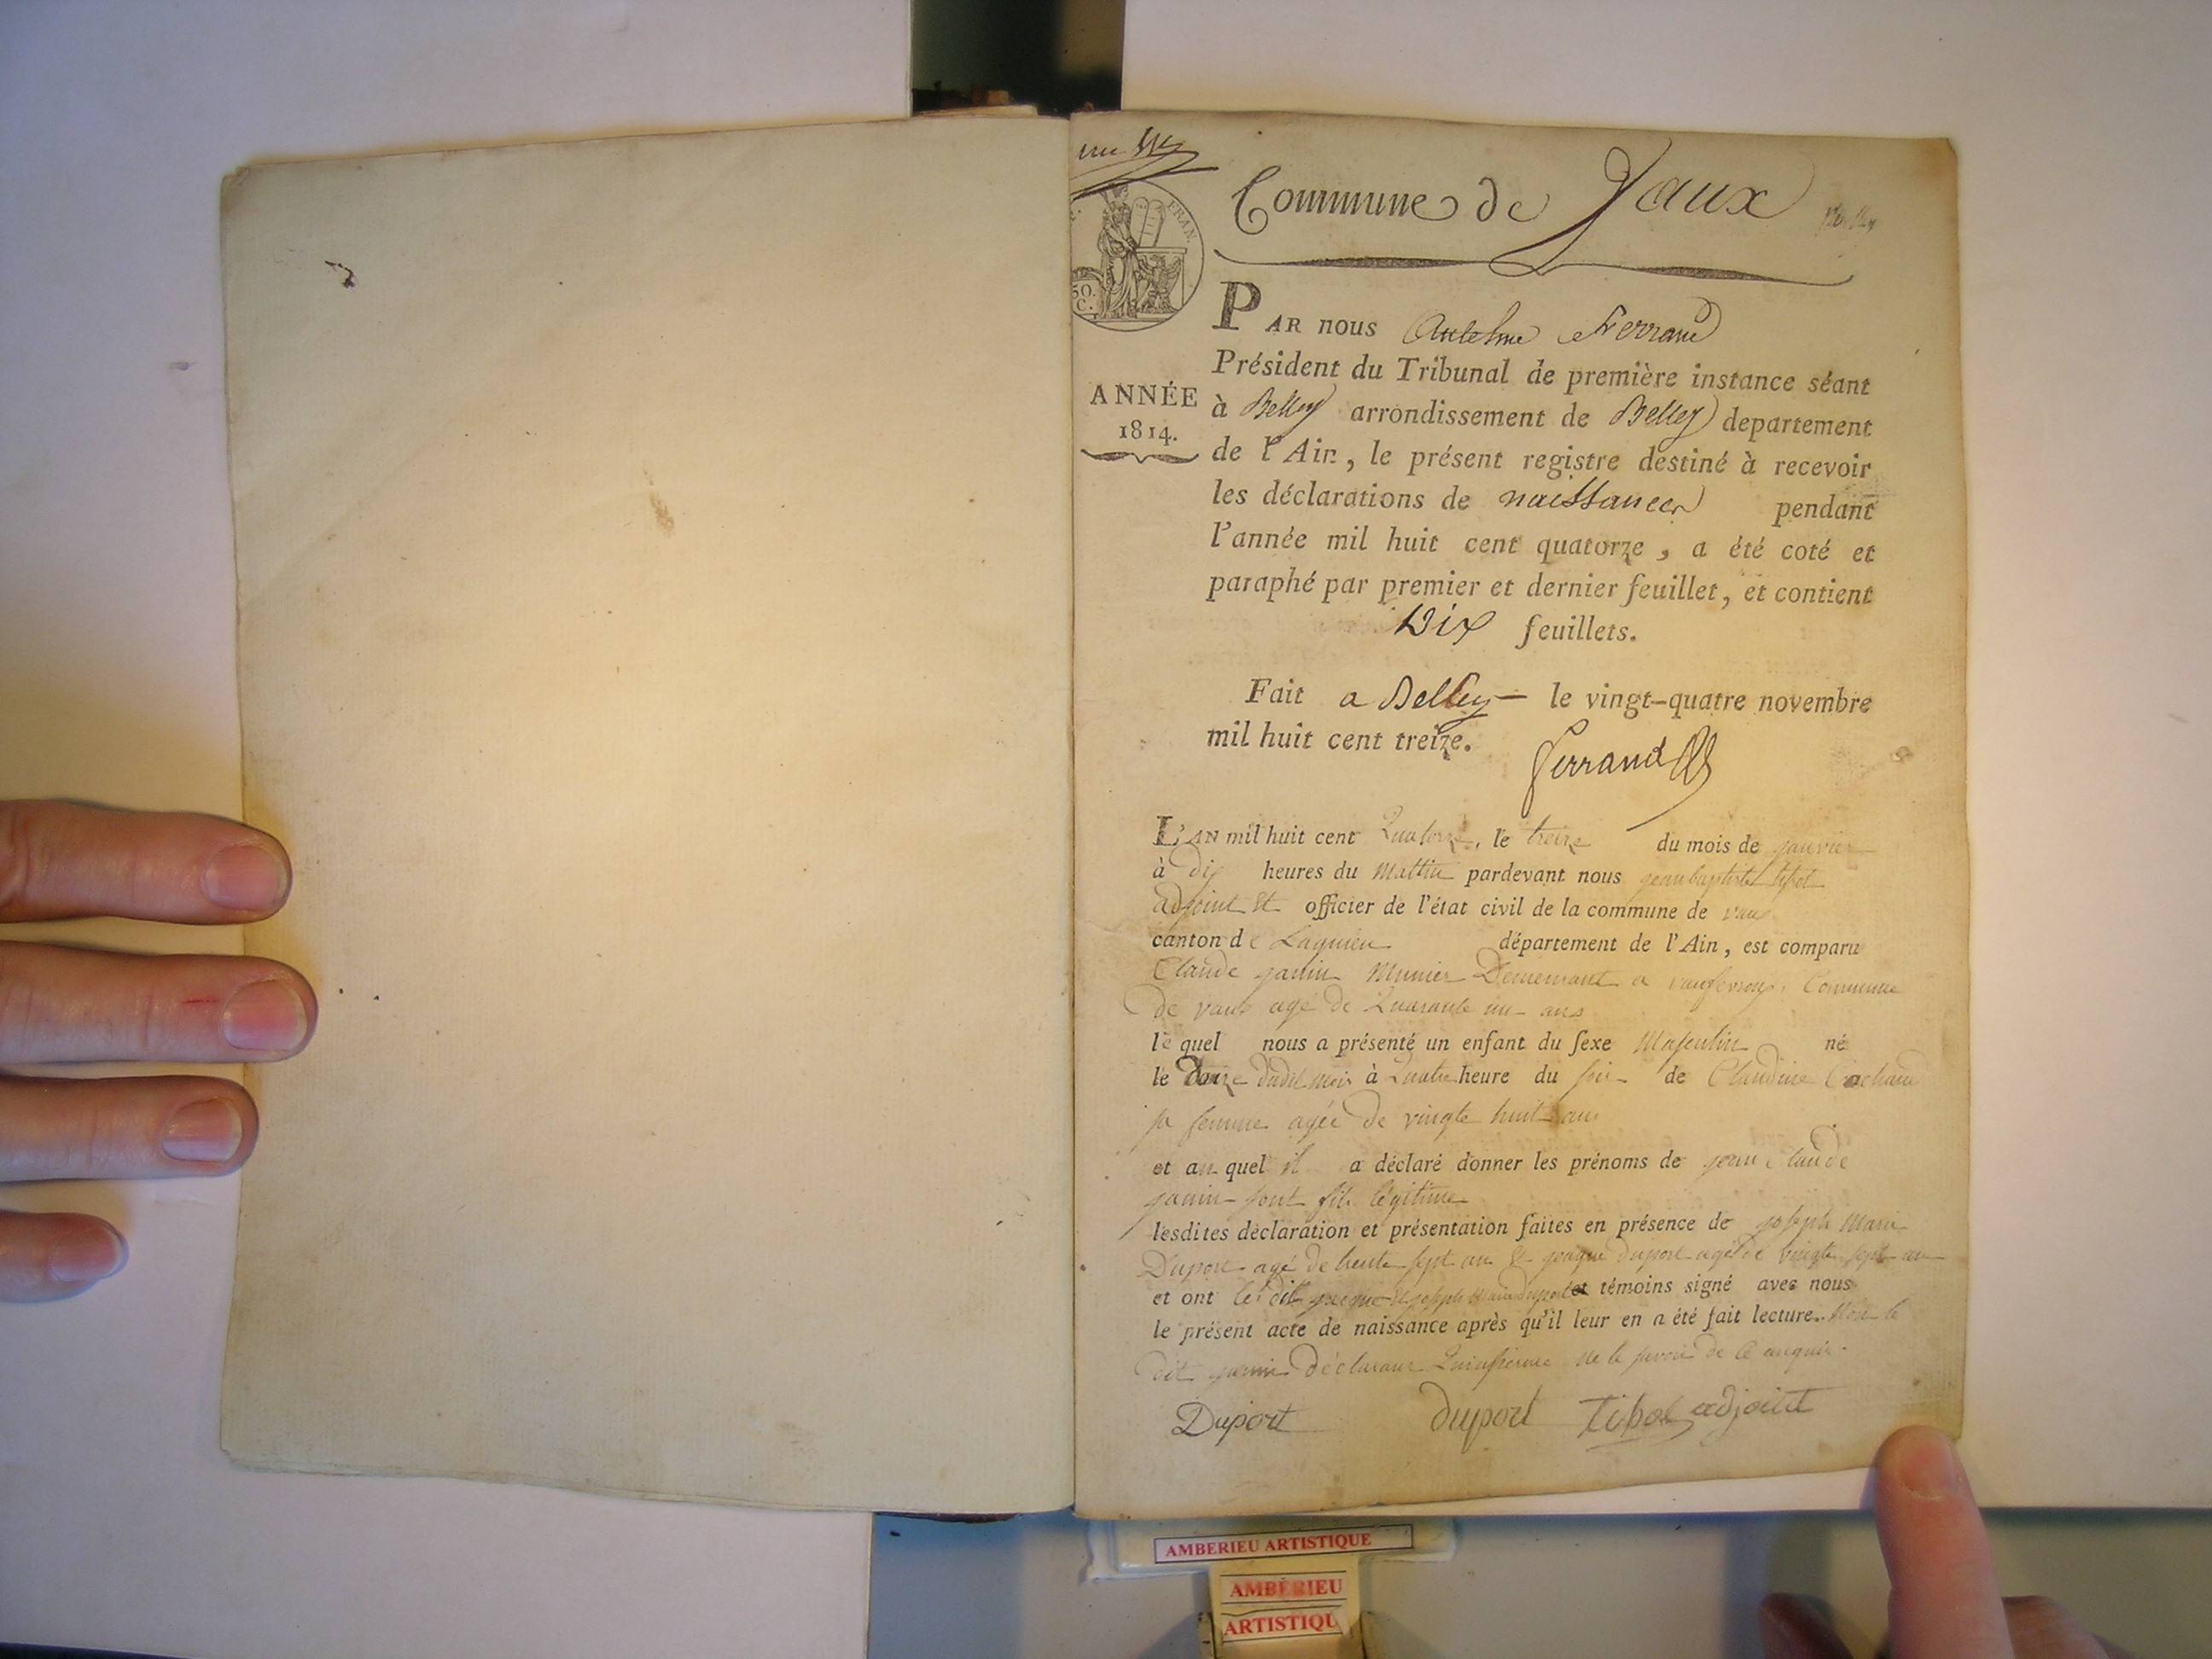 Commune de Vaux
FRAN.
50.
C.
PAR nous Antelme Ferrand
Président du Tribunal de première instance séant
ANNÉE
1814.
à Belley arrondissement de Belley departement
de l'Ain, le présent registre destiné à recevoir
les déclarations de naissances pendant
l'année mil huit cent quatorze, a été coté et
paraphé par premier et dernier feuillet, et contient
Dix feuillets.
Fait a Belley — le vingt-quatre novembre
mil huit cent treize.
Ferrand
L'AN mil huit cent Quatorze, le treize du mois de janvier
à dix heures du mattin pardevant nous jean baptiste tibot
adjoint et officier de l'état civil de la commune de vaux
canton de Lagnieu département de l'Ain, est comparu
Claude janin Munier Demeurant a Commune
de vaux agé de Quarante un ans
le quel nous a présenté un enfant du sexe Masculin né
le douze dudit mois à Quatre heure du soir de Claudine
sa femme agée de vingte huit ans
et au quel il a déclaré donner les prénoms de jean Claude
janin sont fils légitime
lesdites déclaration et présentation faites en présence de joseph Marie
Duport agé de trente sept an et jacque duport agé de vingte sept an
et ont les dit jacque et joseph Marie duport témoins signé avec nous
le présent acte de naissance après qu'il leur en a été fait lecture. Non le
dit janin déclarant ne le savoir de ce
Duport duport Tibot adjoint
AMBERIEU ARTISTIQUE
AMBERIEU
ARTISTIQU